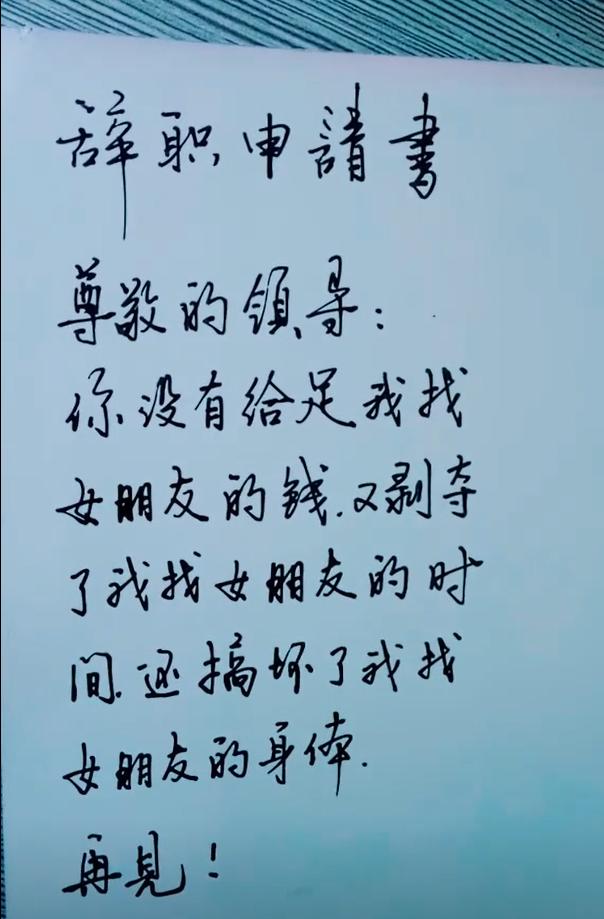 辞职申請書
尊敬的領导：
你没有给足我找
女朋友的钱.又剥夺
了我找女朋友的时
间.还搞坏了我找
女朋友的身体.
再見！